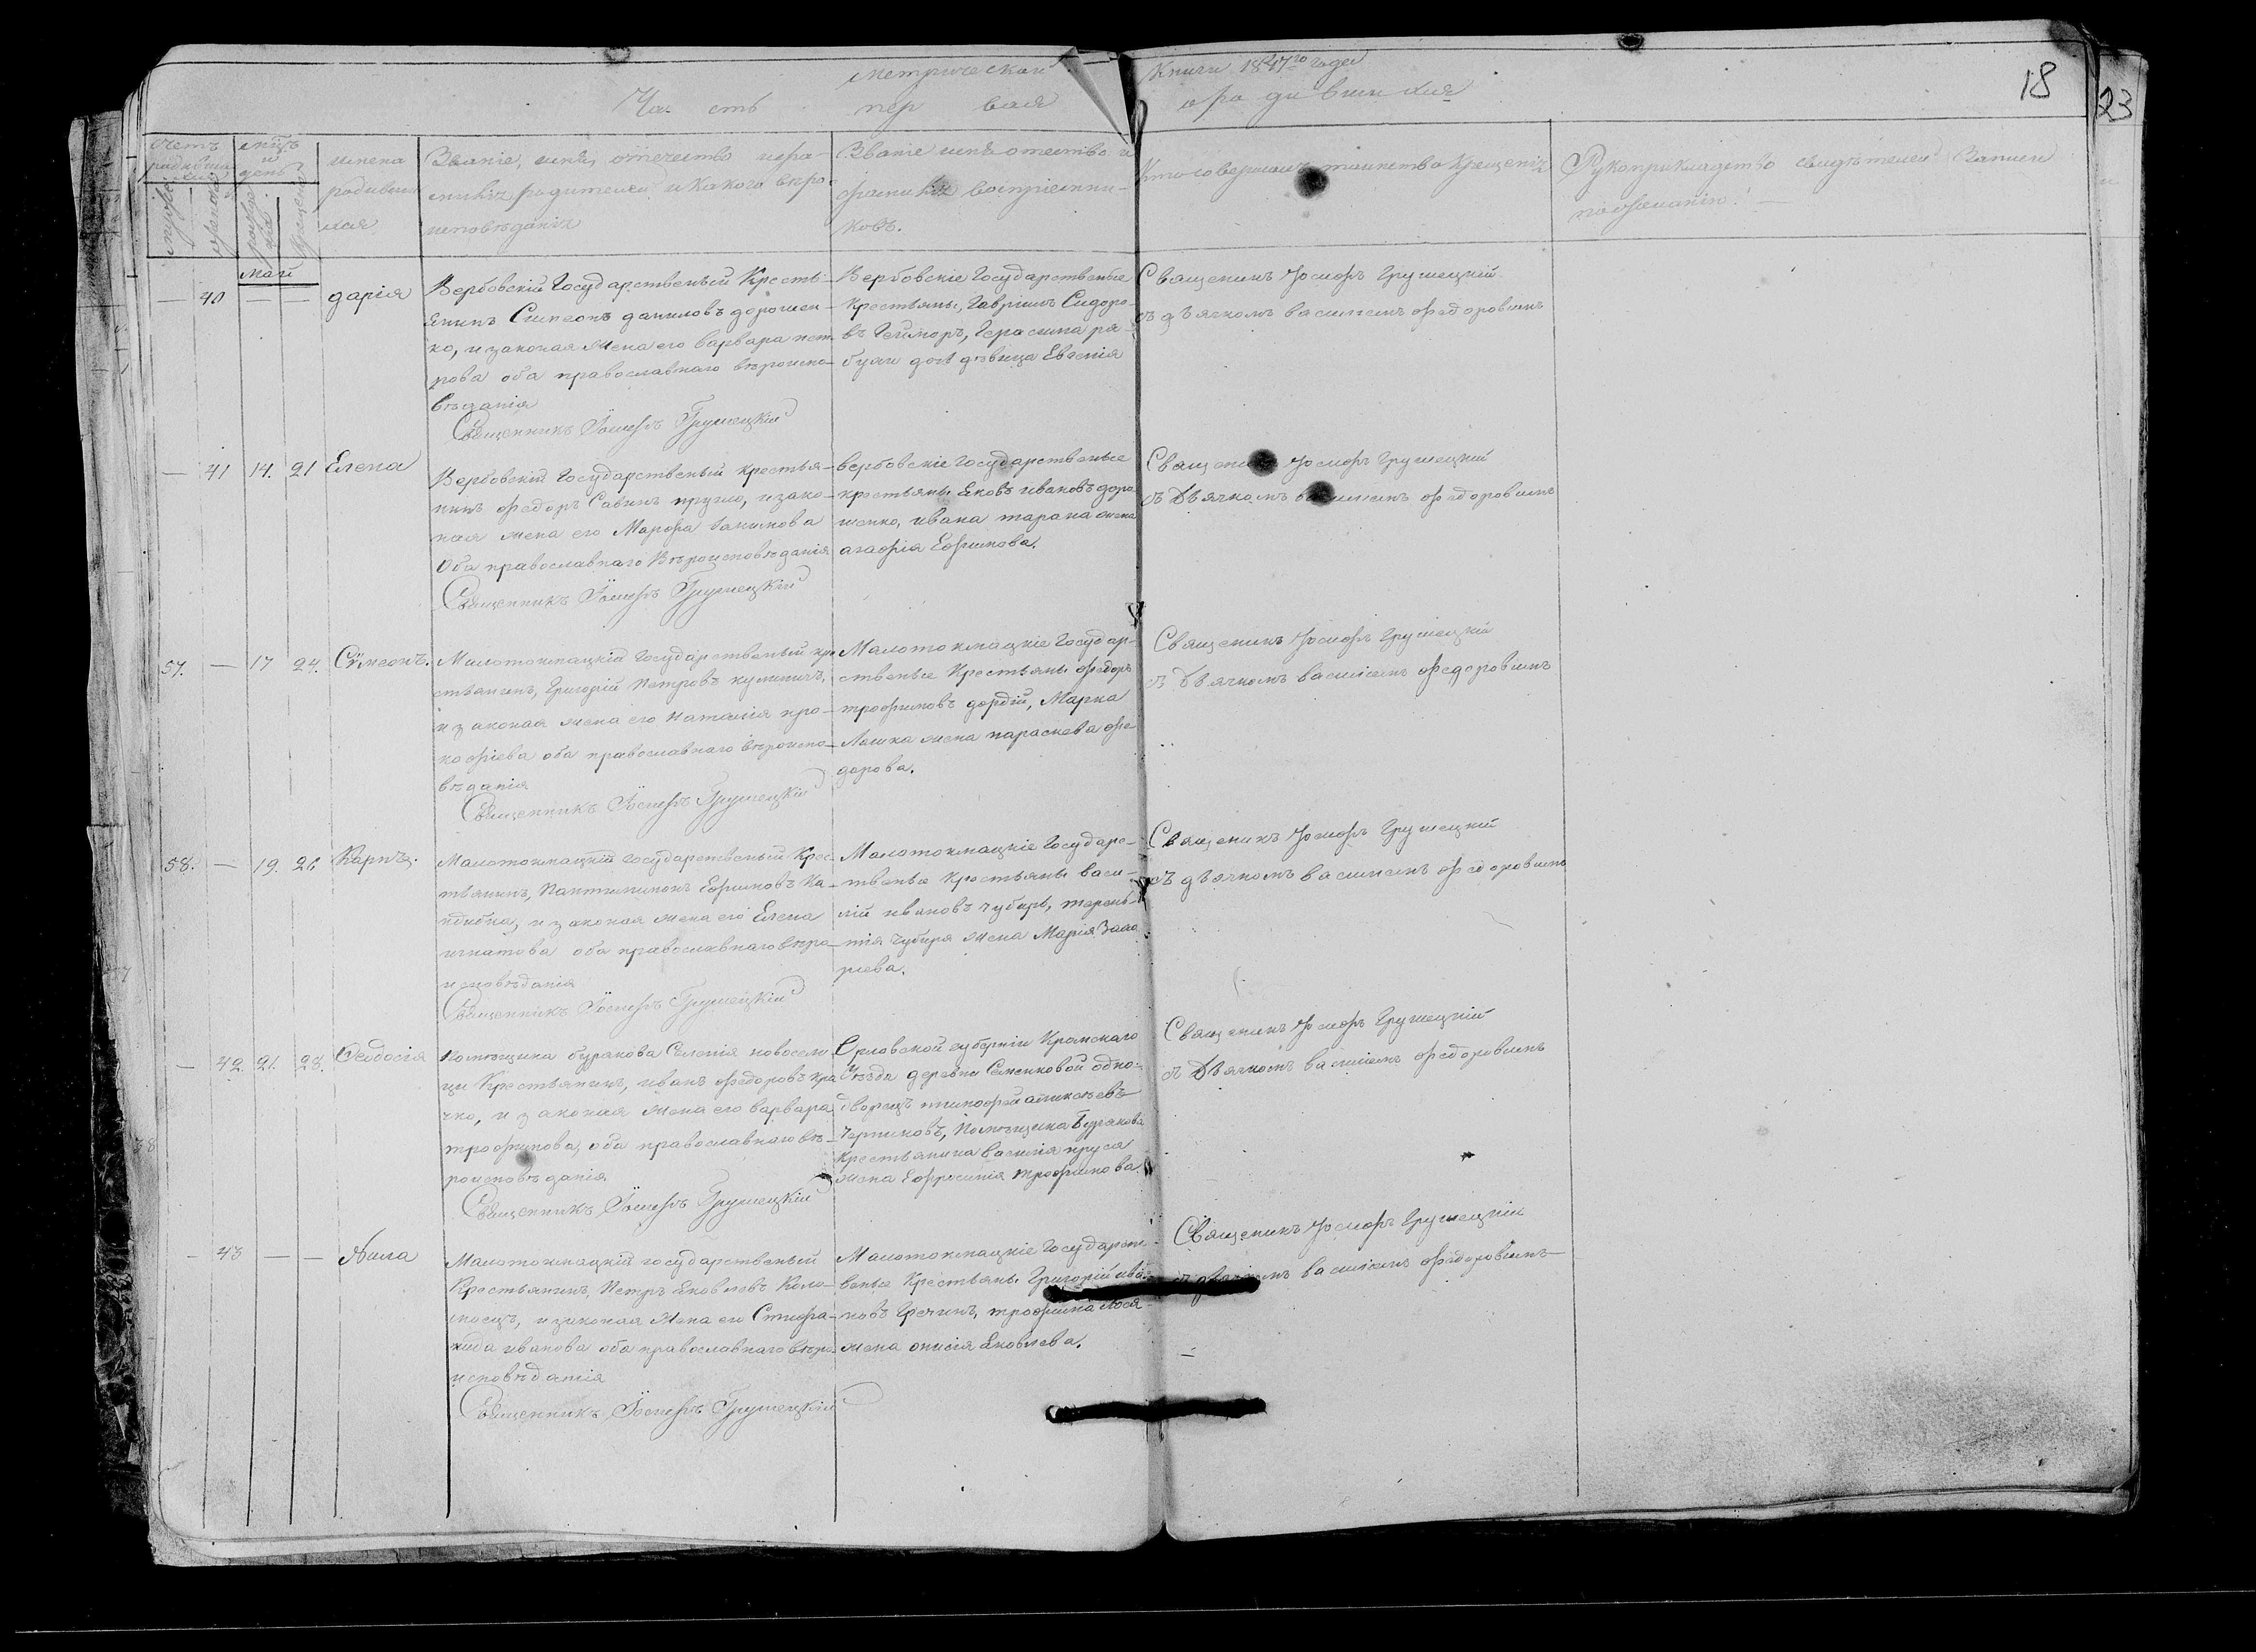 метрической книги 1847го года
Часть первая о родившихся
18
23
Счетъ родившихся
мѣсяцъ и день
имена родившихся
Званіе, имя, отечество и фамилія родителей и какого вѣроисповѣданія
Званіе имя отество и фамилія воспріемниковъ.
Кто совершалъ таинство крещенія
Рукоприкладство свидѣтелей записи по желанію
май
— 40 — — дарія
Вербовскій Государственый Кресть-
янинъ Симеонъ даниловъ дорошен-
ко, и законая жена его варвара пет-
рова оба православнаго вѣроиспо-
вѣданія
Священникъ Іосифъ Грушецкій
Вербовскіе Государственые
крестьяны, Гавріилъ Сидоро-
въ Герасима
дочь дѣвица Евгенія
Священикъ Іосифъ Грушецкій
съ дьячкомъ василіемъ федоровымъ
— 41 14. 21 Елена
Вербовскій Государственый крестья-
нинъ федоръ Савинъ кругло, и зако-
ная жена его Марфа
Оба православнаго Вѣроисповѣданія
Священникъ Іосифъ Грушецкій
Вербовскіе Государственые
крестьяны Яковъ ивановъ доро-
шенко, ивана тарана жена
агафія Ефимова.
Священикъ Іосифъ Грушецкій
съ Дьячкомъ василіемъ федоровымъ
57. — 17 24. Сѵмеонъ.
Малотокмацкій Государственый кре-
стьянинъ, Григорій Петровъ кулиничъ,
и законая жена его наталія про-
кофіева оба православнаго вѣроиспо-
вѣданія
Священникъ Іосифъ Грушецкій
Малотокмацкіе Государ-
ственые Крестьяны федоръ
трофимовъ гордій, Марка
Ляшка жена параскева фе-
дорова.
Священикъ Іосифъ Грушецкій
съ Дьячкомъ василіемъ федоровымъ
58. — 19. 26 Карпъ.
Малотокмацкій государственый Крес-
тьянинъ, Пантелимонъ Ефимовъ Ка-
и законая жена его Елена
игнатова оба православнаго вѣро-
исповѣданія
Священникъ Іосифъ Грушецкій
Малотокмацкіе Государс-
твеные Крестьяны васи-
лій ивановъ чубирь, терень-
тія чубиря жена Марія Заха-
риева.
Священикъ Іосифъ Грушецкій
съ дьячкомъ василіемъ федоровымъ
— 42. 21. 28. Феодосія
Помѣщика бурякова Селенія новосели-
ци Крестьянинъ, иванъ федоровъ кра-
чко, и законая жена его варвара
трофимова, оба православнаго вѣ-
роисповѣданія
Священникъ Іосифъ Грушецкій
Орловской губерніи Кромскаго
Уѣзда деревни Семенковой одно-
дворецъ тимофей
Черниковъ, Помѣщика Бурякова
Крестьянина василія пруса
жена Ефросинія трофимова.
Священикъ Іосифъ Грушецкій
съ Дьячкомъ василіемъ федоровымъ
— 43 — — Анна
Малотокмацкій государственый
Крестьянинъ, Петръ Яковлевъ Коло-
и законая жена его Стефа-
нида иванова оба православнаго вѣро-
исповѣданія
Священникъ Іосифъ Грушецкій
Малотокмацкіе Государст-
веные Крестьяны Григорій ива-
новъ Гречинъ, трофима
жена онисія Яковлева.
Священикъ Іосифъ Грушецкій
съ дьячкомъ василіемъ федоровымъ